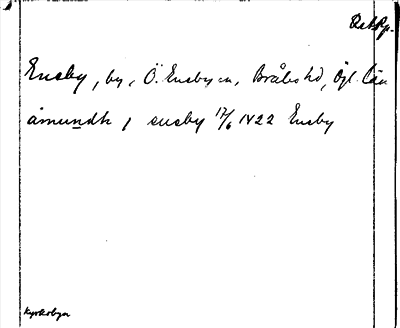 Ensby, by, Ö. Eneby sn, Bråbo hd, Ögl. län
amundh i ensby 17/6 1422 Ensby
Kyrkobyn